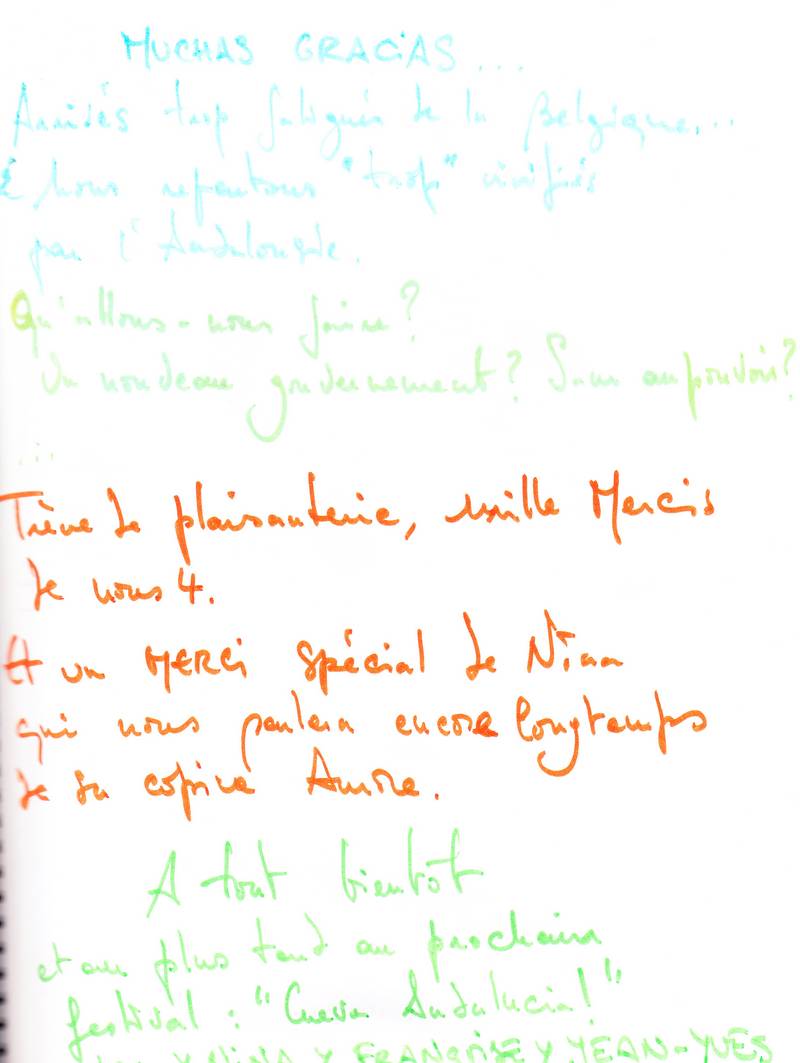 MUCHAS GRACIAS...
Arrivés trop fatigués de la Belgique...
& nous repartons "trop" vivifiés
par l'Andalousie.
Qu'allons-nous faire?
Un nouveau gouvernement? Sans au pouvoir?
...
Trève de plaisanterie, mille Mercis
de nous 4.
Et un MERCi spécial de Nina
qui nous parlera encore longtemps
de sa copine
A tout bientôt
et au plus tard au prochain
festival : "Cueva Andalucia!"
Y NiNA Y FRANÇOiSE Y JEAN-YVES